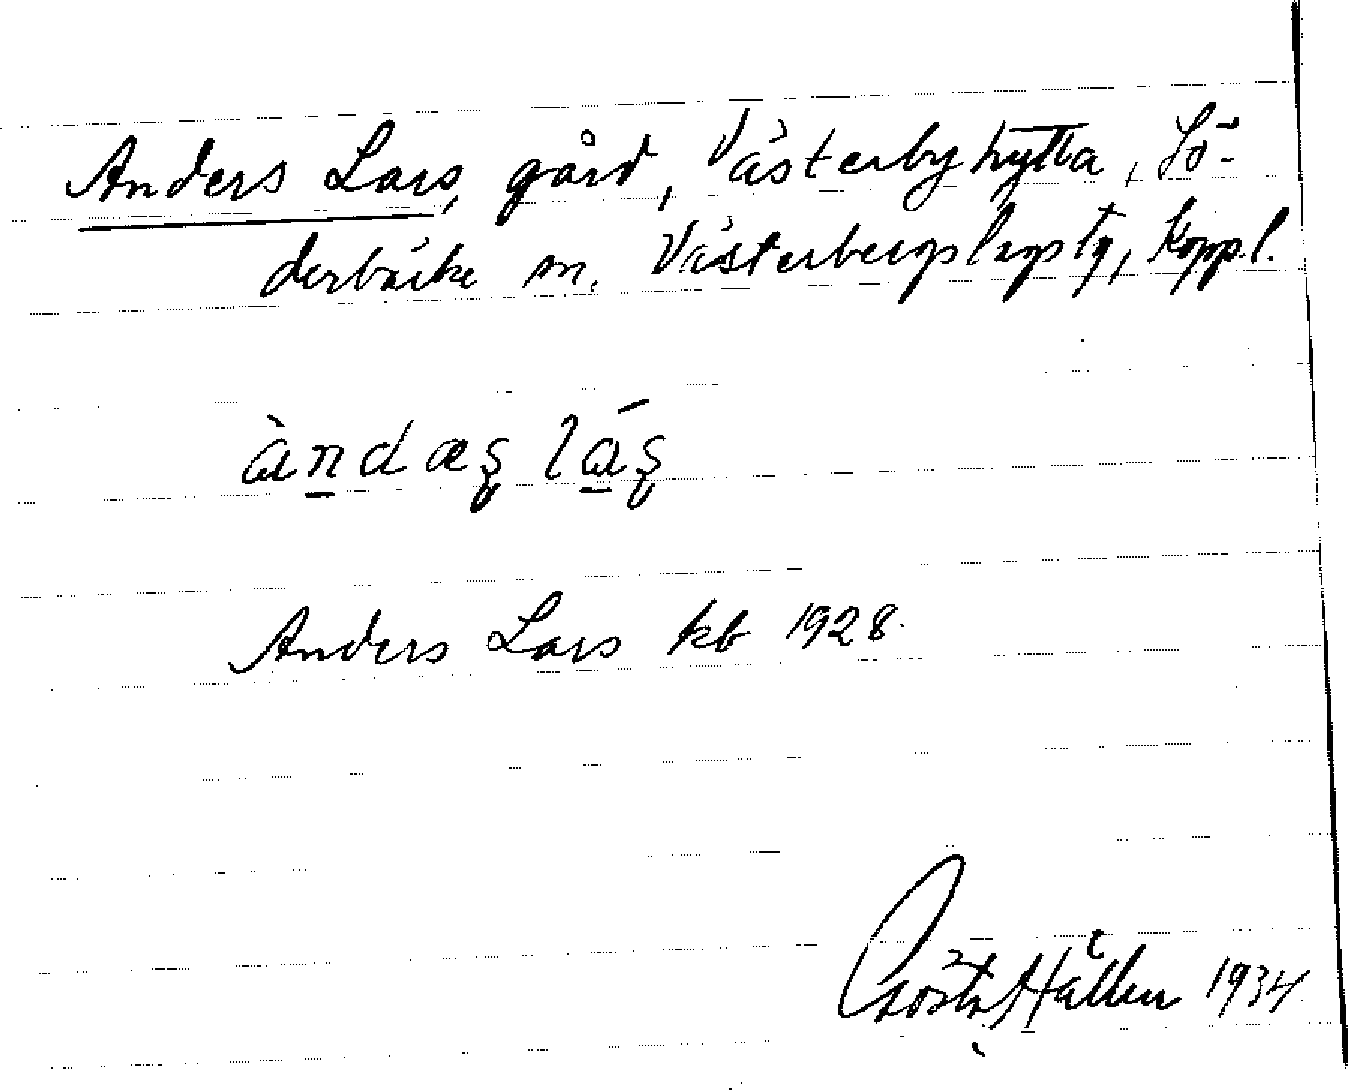 Anders Lars, gård, Västerbyhytta, Sö-
derbärke sn. Västerbergslags tg, Kopp.l.
àndæș lā́ș
Anders Lars kb 1928.
Gösta Hållen 1934